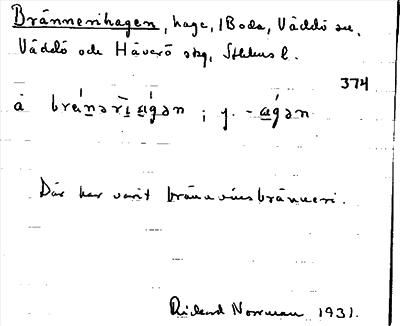 Brännerihagen, hage, 1 Boda, Väddö sn,
Väddö och Häverö skg, Sthlms l.
374
å brä́nərì ágən ; y. -ágən
Där har varit brännvinsbränneri.
Rickard Norrman 1931.